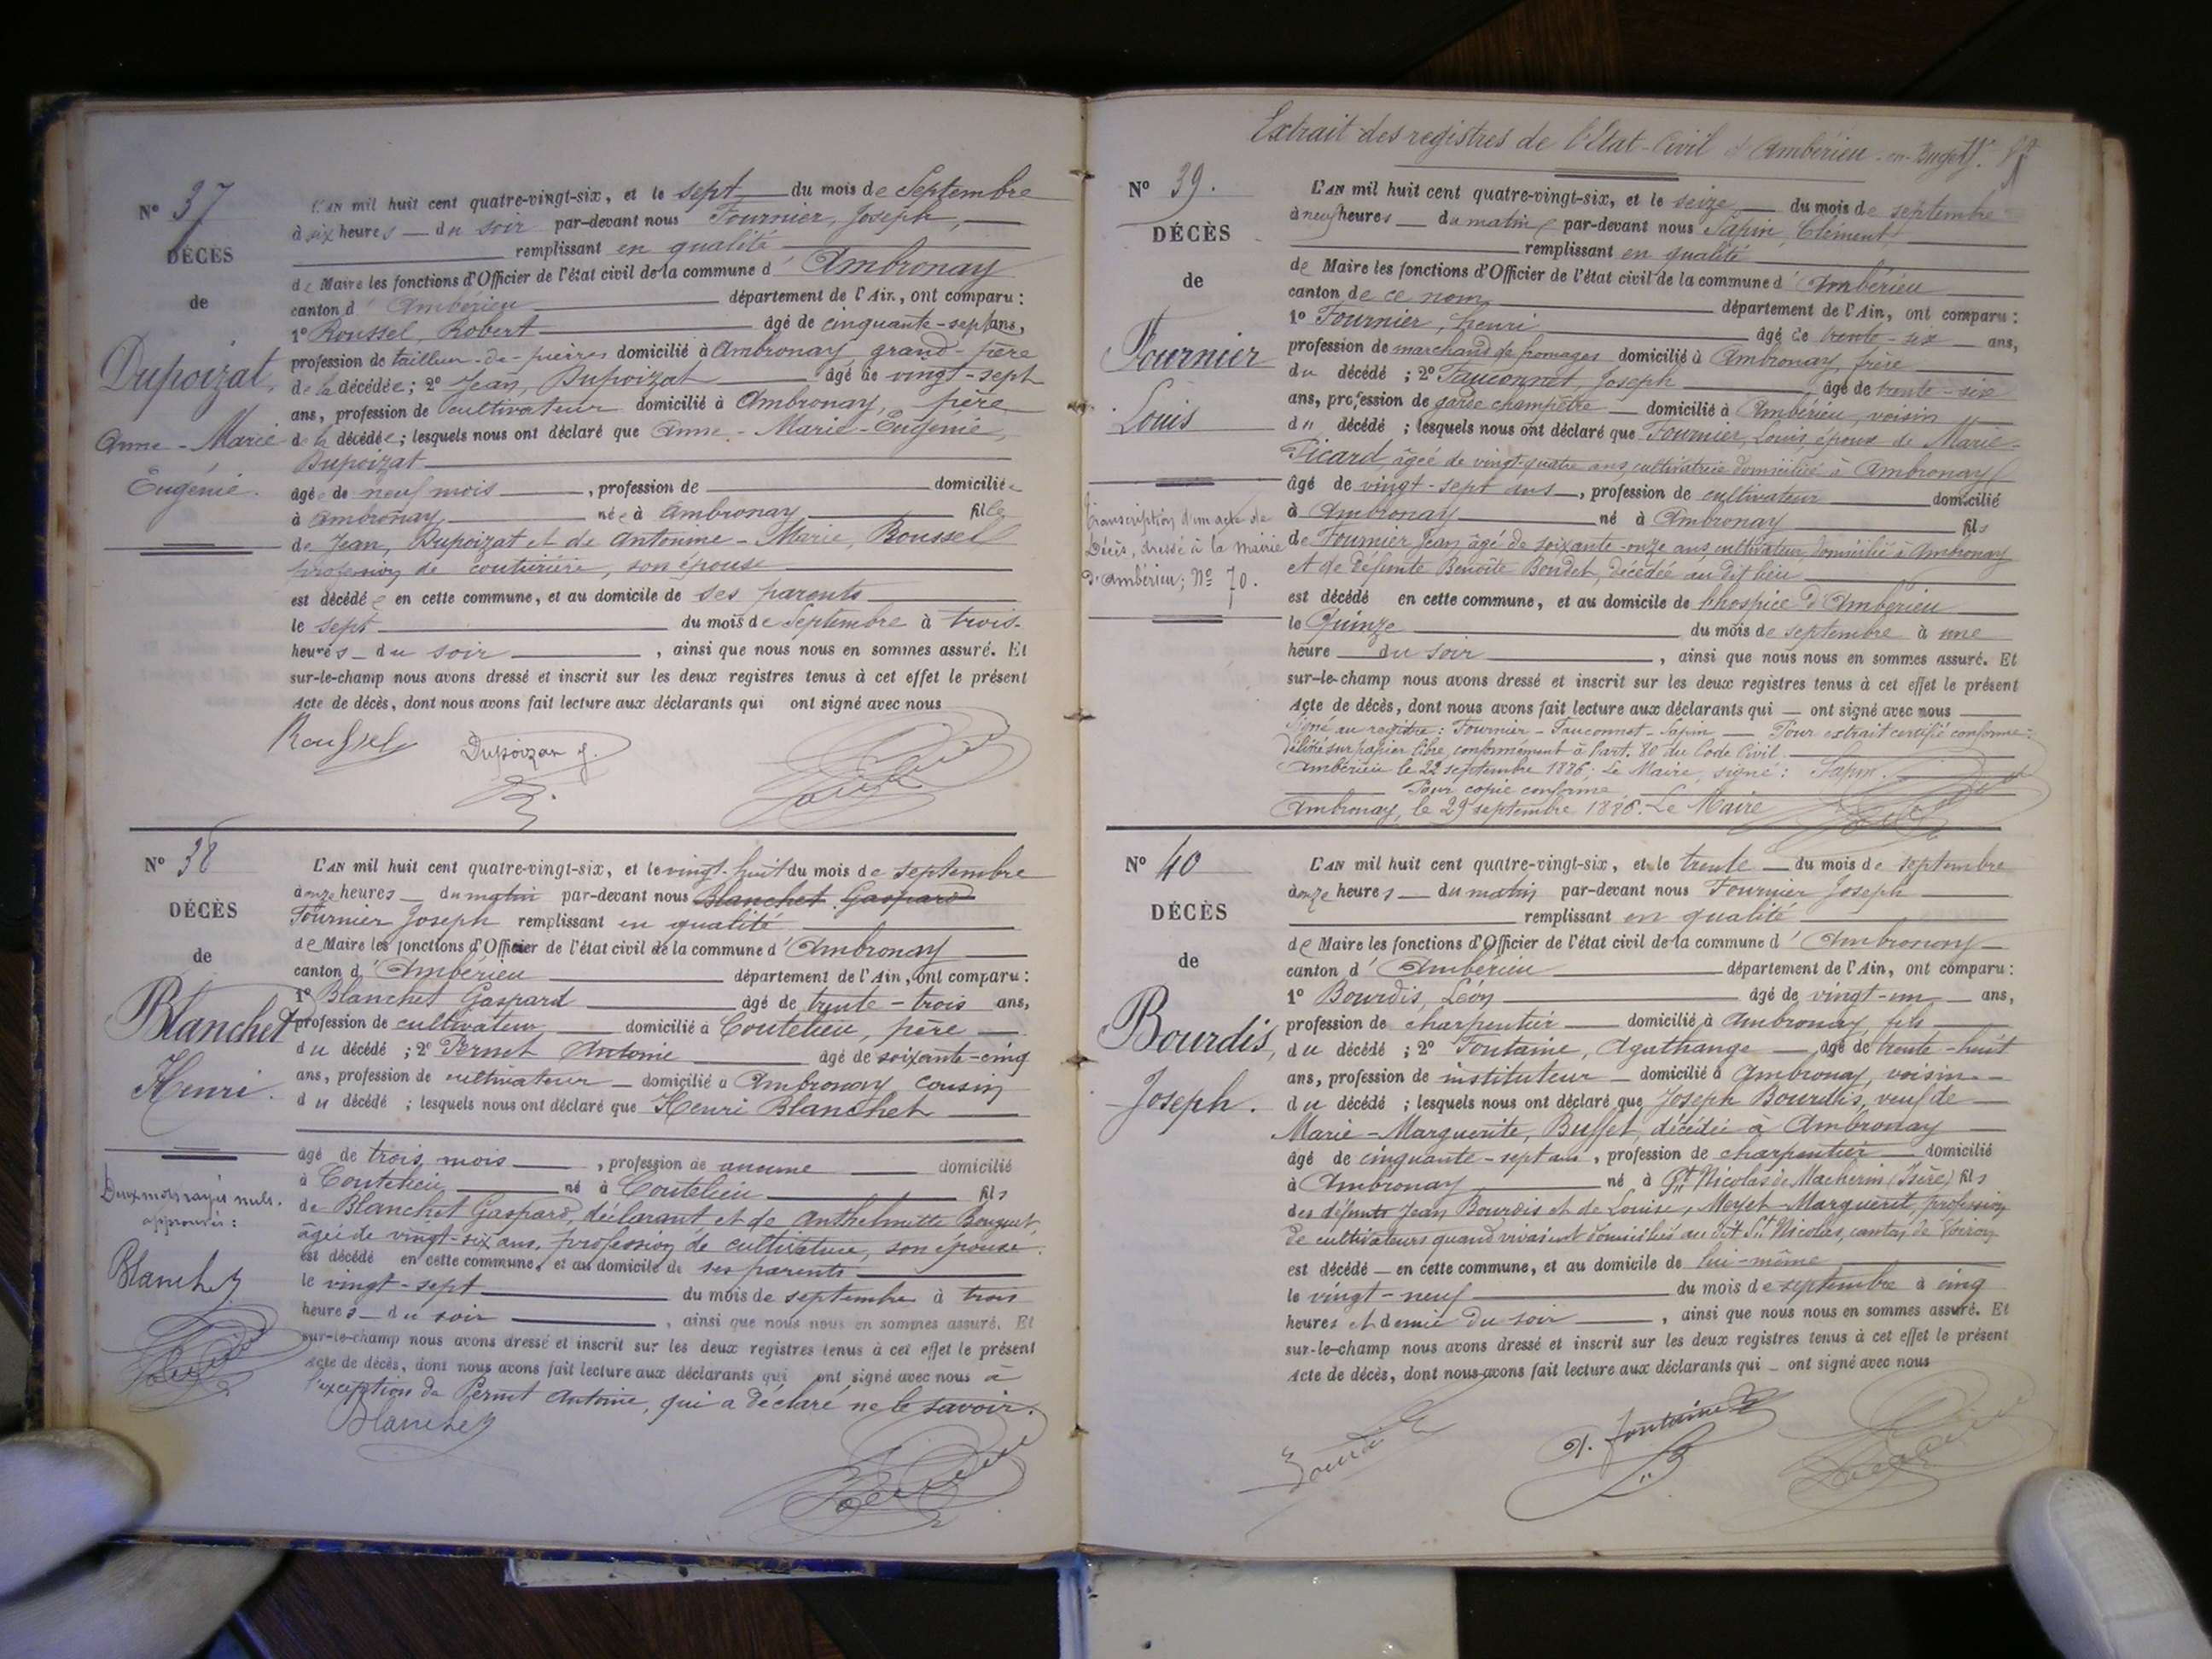 N° 37
DÉCÈS
de
Dupoizat,
Anne-Marie
Eugénie.
L'AN mil huit cent quatre-vingt-six, et le sept du mois de Septembre
à six heures du soir par-devant nous Fournier, Joseph,
remplissant en qualité
de Maire les fonctions d'Officier de l'état civil de la commune d'Ambronay
canton d'Ambérieu département de l'Ain, ont comparu :
1° Roussel, Robert âgé de cinquante-sept ans,
profession de tailleur-de-pierres domicilié à Ambronay, grand-père
de la décédée ; 2° Jean, Dupoizat âgé de vingt-sept
ans, profession de cultivateur domicilié à Ambronay, père
de la décédée ; lesquels nous ont déclaré que Anne-Marie-Eugénie,
Dupoizat
âgée de neuf mois, profession de domiciliée
à Ambronay née à Ambronay fille
de Jean, Dupoizat et de Antonine-Marie, Roussel
profession de couturière, son épouse
est décédée en cette commune, et au domicile de ses parents
le sept du mois de Septembre à trois
heures du soir, ainsi que nous nous en sommes assuré. Et
sur-le-champ nous avons dressé et inscrit sur les deux registres tenus à cet effet le présent
Acte de décès, dont nous avons fait lecture aux déclarants qui ont signé avec nous
Roussel Dupoizat j.
N° 38
DÉCÈS
de
Blanchet
Henri.
Deux mots rayés nuls.
approuvés :
Blanchet
L'AN mil huit cent quatre-vingt-six, et le vingt-huit du mois de septembre
à onze heures du matin par-devant nous Blanchet Gaspard
Fournier Joseph remplissant en qualité
de Maire les fonctions d'Officier de l'état civil de la commune d'Ambronay
canton d'Ambérieu département de l'Ain, ont comparu :
1° Blanchet Gaspard âgé de trente-trois ans,
profession de cultivateur domicilié à Coutelieu, père
du décédé ; 2° Pernet Antoine âgé de soixante-cinq
ans, profession de cultivateur domicilié à Ambronay, cousin
du décédé ; lesquels nous ont déclaré que Henri Blanchet
âgé de trois mois, profession de aucune domicilié
à Coutelieu né à Coutelieu fils
de Blanchet Gaspard, déclarant et de Anthelmette
âgée de vingt-six ans, profession de cultivatrice, son épouse
est décédé en cette commune, et au domicile de ses parents
le vingt-sept du mois de septembre à trois
heures du soir, ainsi que nous nous en sommes assuré. Et
sur-le-champ nous avons dressé et inscrit sur les deux registres tenus à cet effet le présent
Acte de décès, dont nous avons fait lecture aux déclarants qui ont signé avec nous à
l'exception de Pernet Antoine, qui a déclaré ne le savoir.
Blanchet
Extrait des registres de l'Etat-Civil d'Ambérieu-en-Bugey.
N° 39.
DÉCÈS
de
Fournier
Louis
Transcription d'un acte de
Décès, dressé à la Mairie
d'Ambérieu ; N° 70.
L'AN mil huit cent quatre-vingt-six, et le seize du mois de septembre
à neuf heures du matin par-devant nous Sapin, Clément
remplissant en qualité
de Maire les fonctions d'Officier de l'état civil de la commune d'Ambérieu
canton de ce nom département de l'Ain, ont comparu :
1° Fournier, henri âgé de trente-six ans,
profession de marchand de fromages domicilié à Ambronay, frère
du décédé ; 2° Fauconnet, Joseph âgé de trente-six
ans, profession de garde champêtre domicilié à Ambérieu, voisin
du décédé ; lesquels nous ont déclaré que Fournier, Louis, époux de Marie
Picard, âgée de vingt-quatre ans, cultivatrice domiciliée à Ambronay
âgé de vingt-sept ans, profession de cultivateur domicilié
à Ambronay né à Ambronay fils
de Fournier Jean, âgé de soixante-onze ans, cultivateur, domicilié à Ambronay
et de défunte Benoîte Bondet, décédée au dit lieu
est décédé en cette commune, et au domicile de l'hospice d'Ambérieu
le Quinze du mois de septembre à une
heure du soir, ainsi que nous nous en sommes assuré. Et
sur-le-champ nous avons dressé et inscrit sur les deux registres tenus à cet effet le présent
Acte de décès, dont nous avons fait lecture aux déclarants qui ont signé avec nous
Signé au registre : Fournier - Fauconnet - Sapin - Pour extrait certifié conforme
délivré sur papier libre, conformément à l'art. 80 du Code Civil.
Ambérieu le 22 septembre 1886 ; Le Maire, signé : Sapin.
Pour copie conforme
Ambronay, le 29 septembre 1886. Le Maire
N° 40
DÉCÈS
de
Bourdis,
Joseph.
L'AN mil huit cent quatre-vingt-six, et le trente du mois de septembre
à onze heures du matin par-devant nous Fournier Joseph
remplissant en qualité
de Maire les fonctions d'Officier de l'état civil de la commune d'Ambronay
canton d'Ambérieu département de l'Ain, ont comparu :
1° Bourdis, Léon âgé de vingt-un ans,
profession de charpentier domicilié à Ambronay, fils
du décédé ; 2° Fontaine, Agathange âgé de trente-huit
ans, profession de instituteur domicilié à Ambronay, voisin
du décédé ; lesquels nous ont déclaré que Joseph Bourdis, veuf de
Marie-Marguerite, Buffet, décédée à Ambronay
âgé de cinquante-sept ans, profession de charpentier domicilié
à Ambronay né à St Nicolas de Macherin (Isère) fils
des défunts Jean Bourdis et de Louise, Marguerit, profession
de cultivateurs quand vivaient domiciliés au dit St Nicolas, canton de Voiron
est décédé en cette commune, et au domicile de lui-même
le vingt-neuf du mois de septembre à cinq
heures et demie du soir, ainsi que nous nous en sommes assuré. Et
sur-le-champ nous avons dressé et inscrit sur les deux registres tenus à cet effet le présent
Acte de décès, dont nous avons fait lecture aux déclarants qui ont signé avec nous
Bourdis A. Fontaine